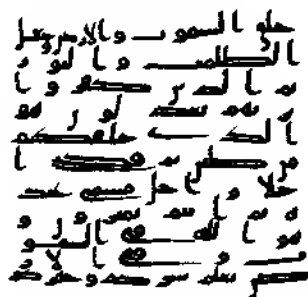 خلق السموت والارض وجعل
الظلمت والنور
ثم الذين كفروا
بربهم يعدلون هو
الذي خلقكم
من طين ثم قضى ا
جلا واجل مسمى عند
ه ثم انتم تمترون و
هو الله في السمو
ت وفي الار
ض يعلم سركم وجهركم